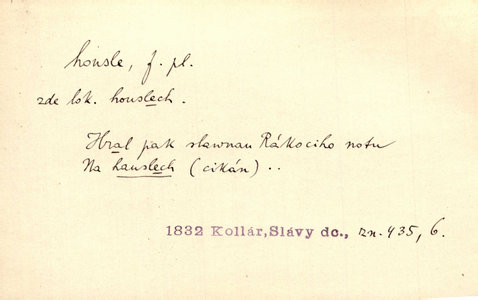 housle, f. pl.
zde lok. houslech.
Hral pak slawnau Rákociho notu
Na hauslech (cikán) ..
1832 Kollár, Slávy dc., zn. 435, 6.